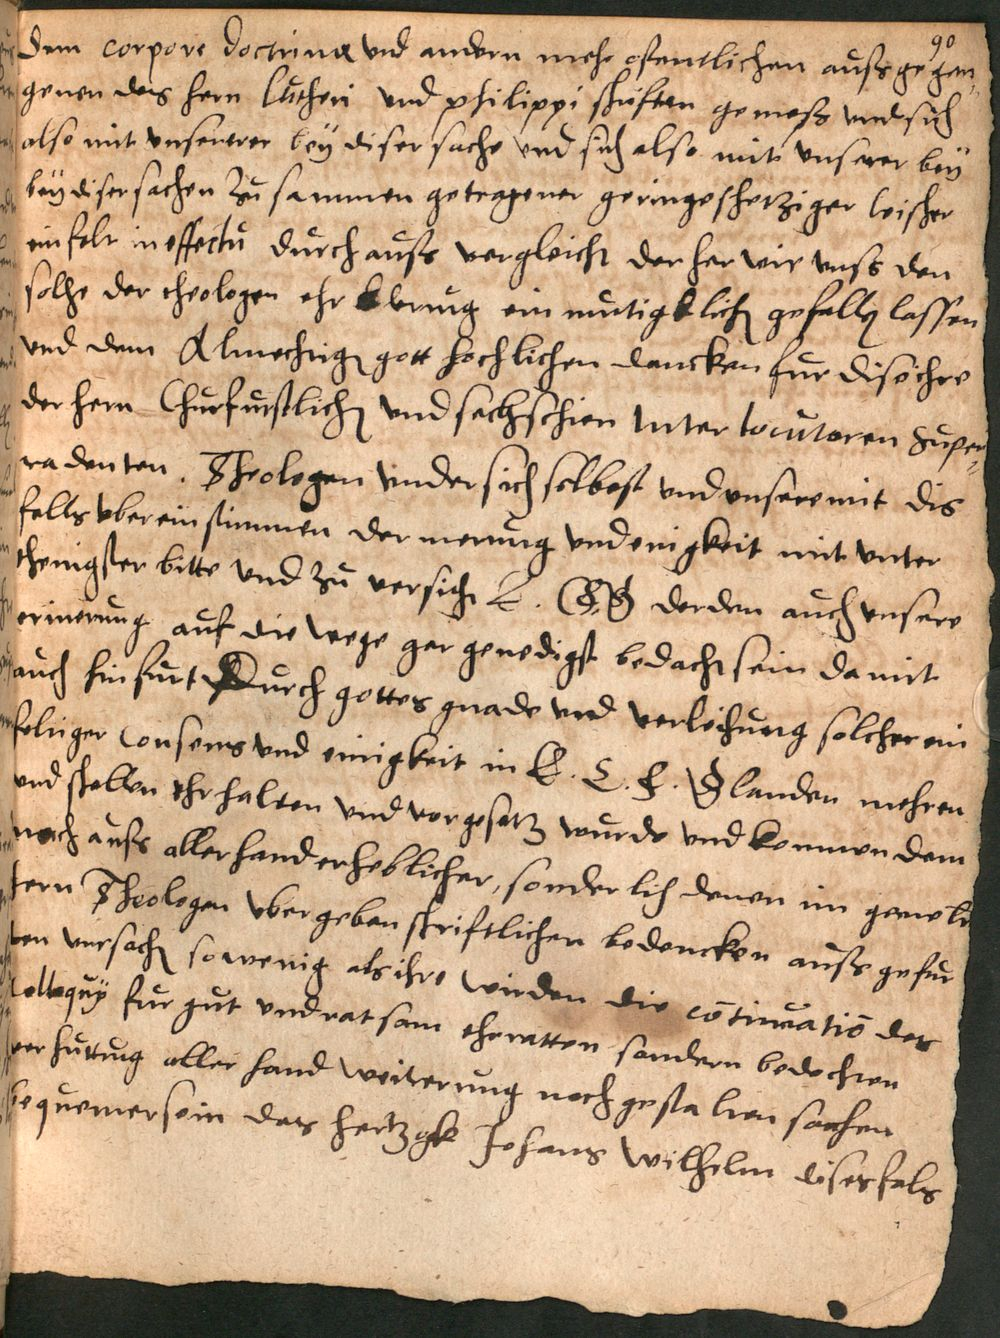 90
dem corpore doctrinæ vnd andern mehr ofentlichen aussgegan-
genen des hern Lutheri vnd philippi schriften gemess vnd sich
also mit vnserer bey diser sache vnd sich also mit vnserer bey
bey diser sachen zu sammen getragener geringeschetziger
einfelt in effectu durchauss vergleicht der her wir vnss den
solhe der theologen ehrklerung ein mutigklich gefallen lassen
vnd dem Almechtigen gott hochlichen dancken fur dise ihre
der hern Churfurstlichen vnd sechschien Inter locutoren Super-
radenten. Theologen vnder sich selbest vnd vnsere mit dis
fells vberein stimmen der meinung vnd einigkeit mit vnter
thenigster bitte vnd zu versicht E. C F G derden auch vnsere
erinerung auf die wege gar genedigst bedacht sein damit
auch hinfurt Durch gottes gnade vnd verleihung solcher ein
felticher Consens vnd einigkeit in E. C. F. G landen mehren
vnd schellen ehrhalten vnd vorgesetz wurde vnd konnen dem
nach auss allerhand erheblicher, sonderlich denen im gemelten
hern Theologen vbergeben schriftlichen bedencken auss gefur
ten vrsachen so wenig als ihre wirden die cotinuatio des
Colloquy fur gut vnd ratsam eheratten sondern bedechten
verhuttung aller hand weiterung noch gestalten sachen
bequemer sein das hertzogk Johans Wilhelm disesfals